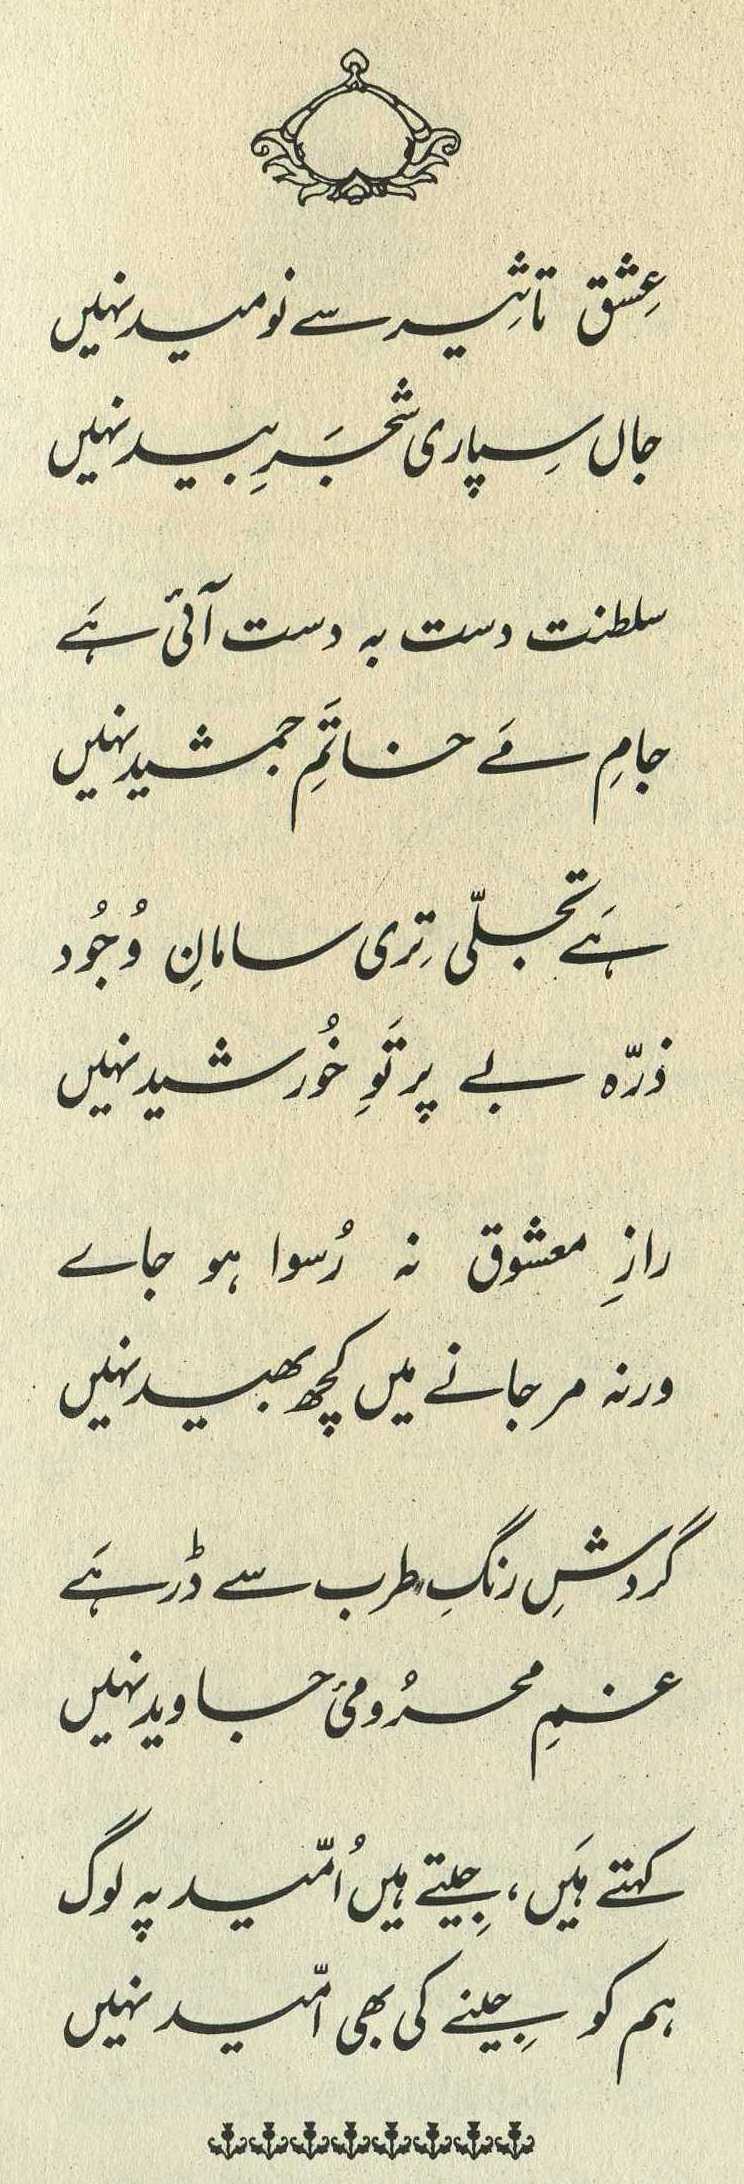 عِشق تاثِیر سے نومید نہیں
جاں سِپاری شجَرِ بید نہیں
سلطنت دست بہ دست آئی ہَے
جامِ مَے خاتَمِ جمشید نہیں
ہَے تجلّی تِری سامانِ وُجُود
ذرّہ بے پرتَوِ خُورشید نہیں
رازِ معشوق نہ رُسوا ہو جاے
ورنہ مر جانے میں کچھ بھید نہیں
گردشِ رنگِ طرب سے ڈر ہَے
غمِ محرُومیٔ جاوید نہیں
کہتے ہَیں، جِیتے ہیں اُمّید پہ لوگ
ہم کو جِینے کی بھی امّید نہیں